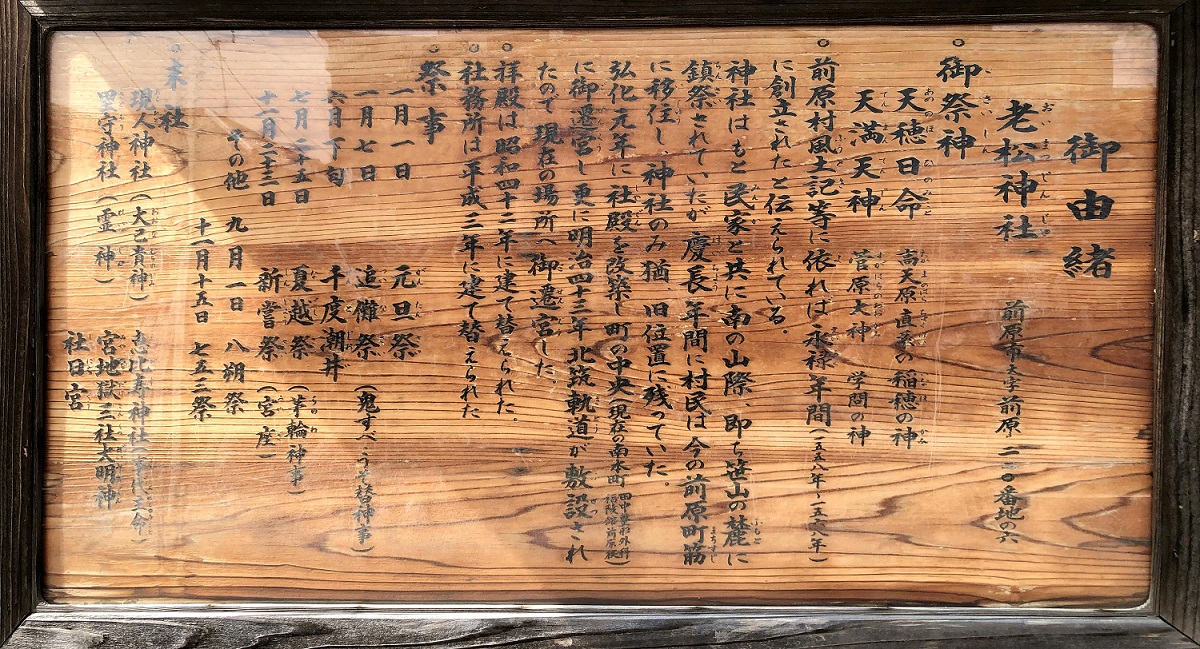 御由緒
老松神社 前原市大字前原一二〇番地の六
御祭神
天穂日命 高天原直系の稲穂の神
天満天神 菅原大神 学問の神
前原村風土記等に依れば永禄年間(一五五八年~一五六八年)
に創立されたと伝えられている。
神社はもと民家と共に南の山際、即ち笹山の麓に
鎮祭されていたが慶長年間に村民は今の前原町筋
に移住し、神社のみ猶、旧位置に残っていた。
弘化元年に社殿を改築し町の中央(現在の南本町 田中整形外科)
に御遷宮し更に明治四十三年北筑軌道が敷設され
たので現在の場所へ御遷宮した。
拝殿は昭和四十二年に建て替えられた。
社務所は平成三年に建て替えられた
祭事
一月一日 元旦祭
一月七日 追儺祭(鬼すべ・うそ替神事)
六月下旬 千度潮井
七月二十五日 夏越祭(茅輪神事)
十一月二十三日 新嘗祭(宮座)
その他 九月一日 八朔祭
十一月十五日 七五三祭
末社
現人神社(大己貴神) 恵比寿神社(事代主命)
里守神社(霊神) 宮地獄三社大明神
社日宮